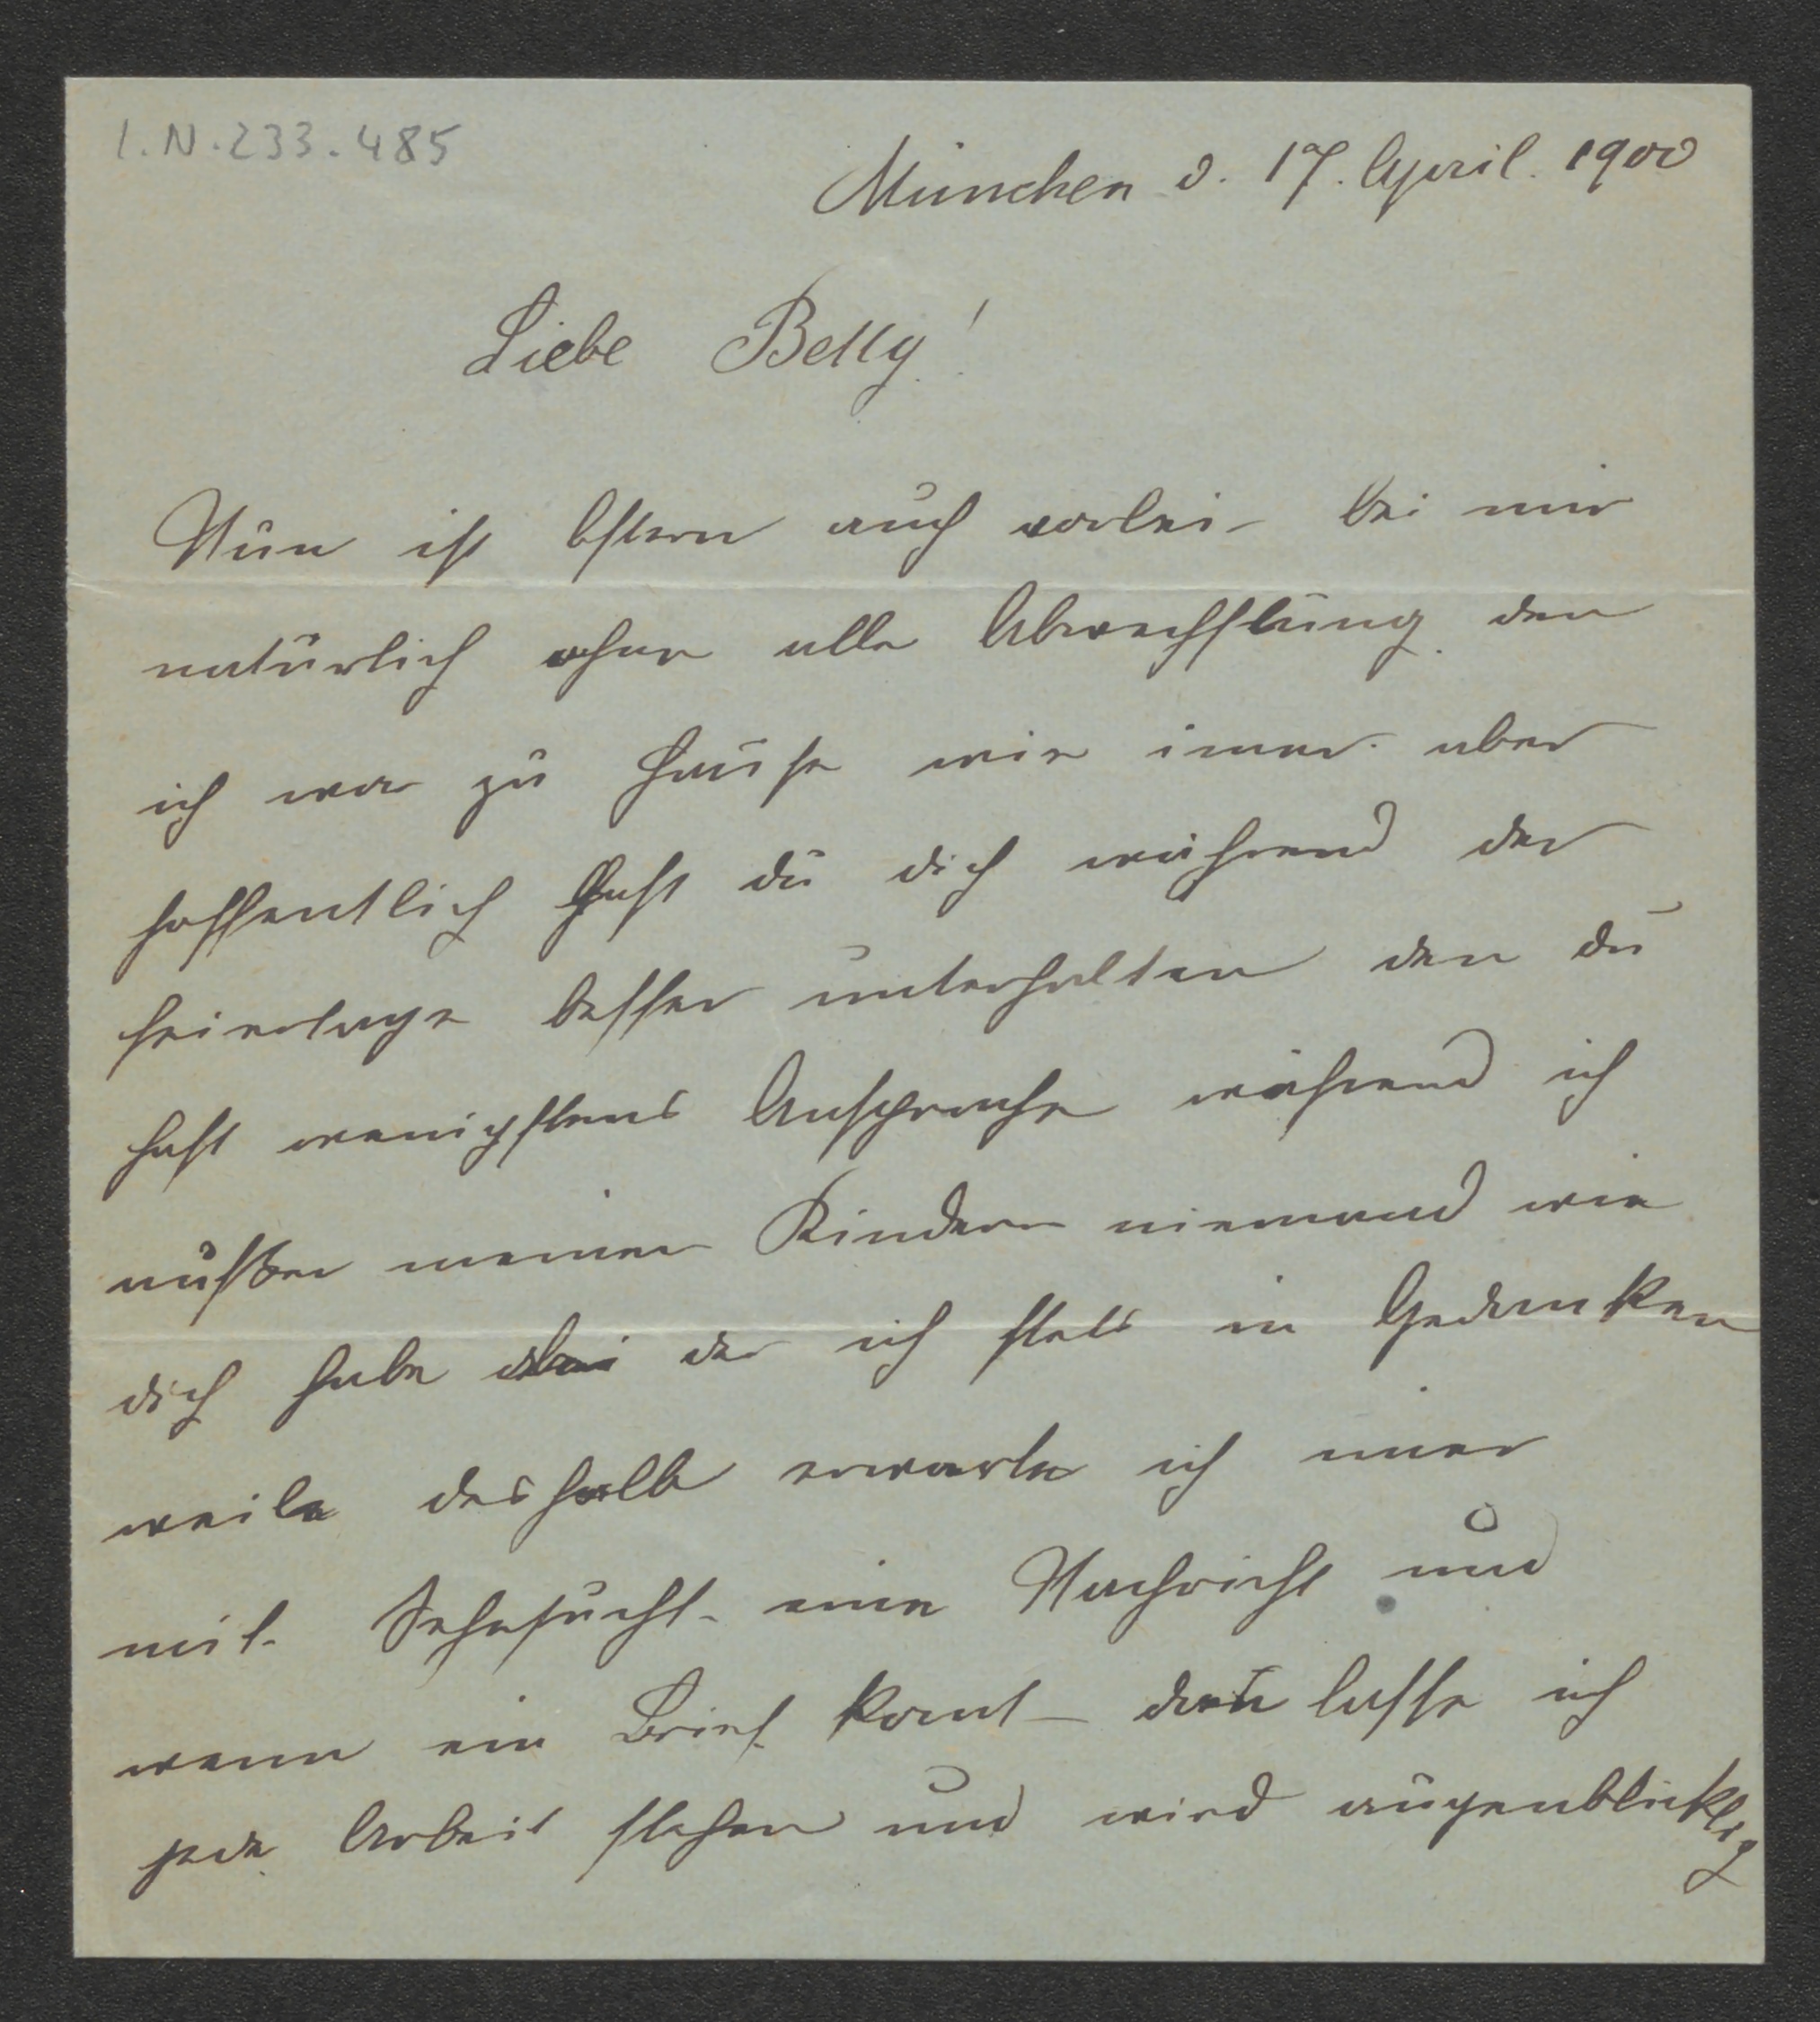 I.N.233.485
München d. 17. April. 1900
Liebe Betty!
Nun ist Ostern auch vorbei - bei mir
natürlich ohne alle Abwechslung. den
ich war zu Hause wie imer. aber
hoffentlich hast du dich während der
feiertage besser unterhalten den du
hast wenigstens Ansprache während ich
außer meinen Kindern niemand wie
dich habe bei der ich stets in Gedanken
weile deshalb erwarte ich imer
mit Sehnsucht - eine Nachricht und
wenn ein Brief komt - dan lasse ich
jede Arbeit stehen und wird augenblicklig